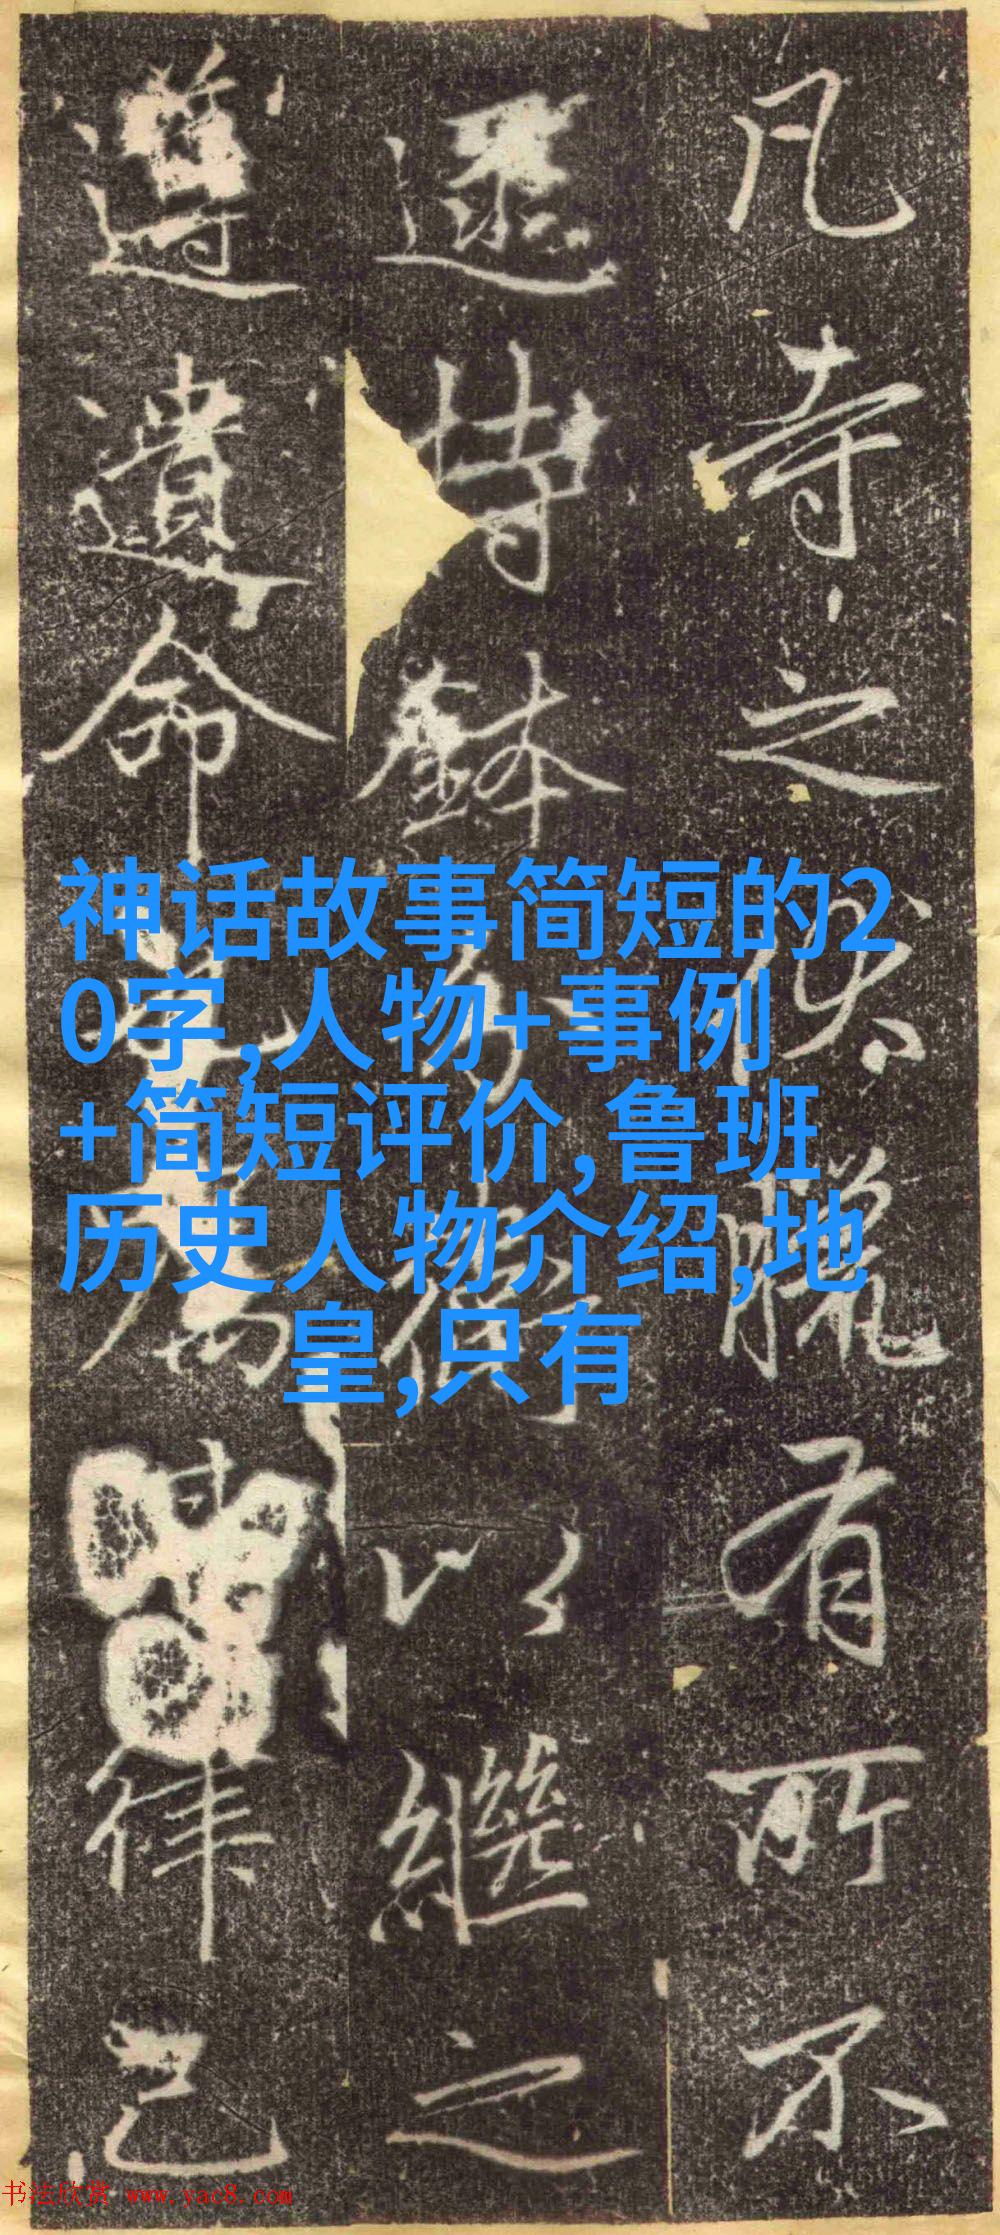 神话故事简短的2
0字,人物+事例
+简短评价,鲁班
历史人物介绍,地
皇,只有
凡寺之伏臘有所不
遝持鉢以繼之
遵遺命律己
书法欣赏 www.yac8.com